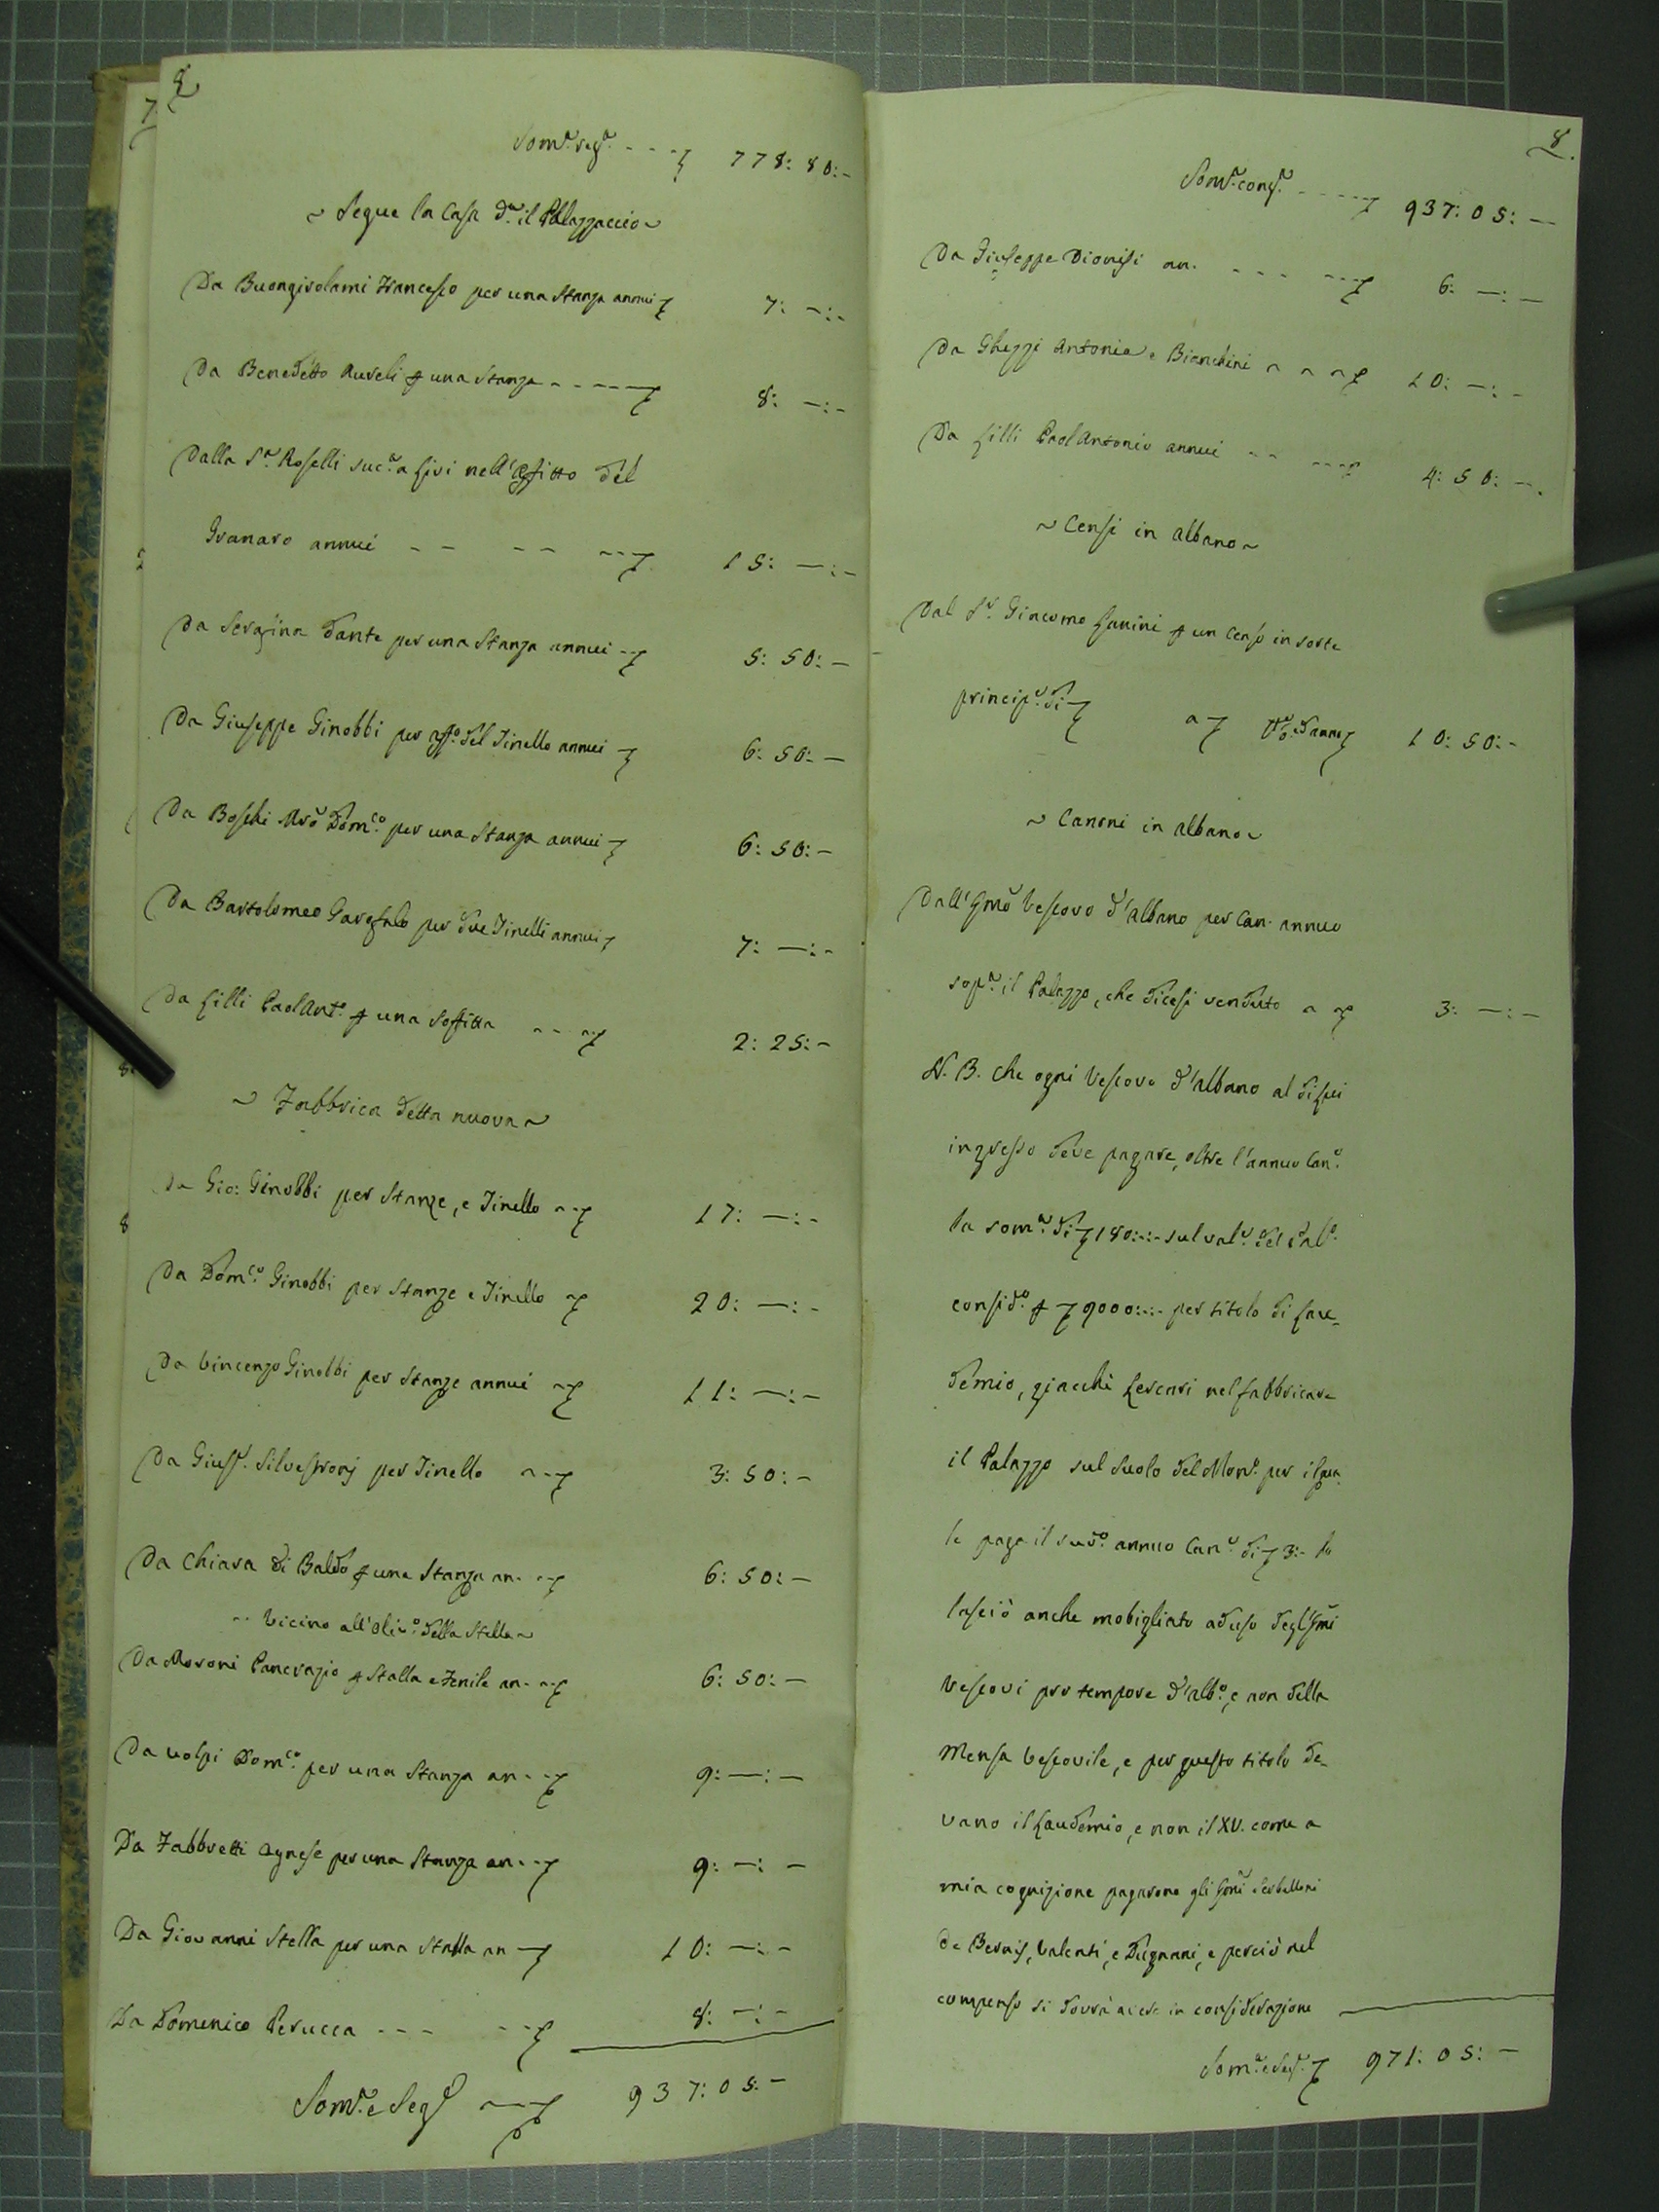 8
Som.ª seg.ª - - - 778: 80:-
~ Segue la Casa d.ª il Palazzaccio ~
Da Buongirolami Francesco per una Stanza annui 7: -:-
Da Benedetto Aureli p una Stanza - - - - - 8: -:-
Dalla S.ª Roselli suc.ª a Fivi nell'Affitto del
Granaro annui - - - - - - - 15: -:-
Da Serafina Dante per una Stanza annui - - 5: 50:-
Da Giuseppe Ginobbi per aff.º del Tinello annui 6: 50:-
Da Boschi Mrõ Dom.co per una Stanza annui 6: 50:-
Da Bartolomeo Garofalo per due Tinelli annui 7: -:-
Da Filli Paol Ant.º p una Soffitta - - - 2: 25:-
~ Fabbrica detta nuova ~
Da Gio: Ginobbi per Stanze, e Tinello - - 17: -:-
Da Dom.co Ginobbi per Stanze e Tinello - 20: -:-
Da Vincenzo Ginobbi per Stanze annui - 11: -:-
Da Gius.e Silvestronj per Tinello - - 3: 50:-
Da Chiara di Baldo p una Stanza an. - - 6: 50:-
- - Vicino all'Oliv.º della Stella ~
Da Moroni Pancrazio p Stalla e Fenile an. - - 6: 50:-
Da Volpi Dom.co per una Stanza an. - - 9: -:-
Da Fabbretti Agnese per una Stanza an. - - 9: -:-
Da Giovanni Stella per una Stalla an - 10: -:-
Da Domenico Perucca - - - - - 8: -:-
Som.ª e Seg.e - - 937: 05:-
8.
Som.ª cong.ª - - - - 937: 05:-
Da Giuseppe Dionisi an. - - - - - - 6: -:-
Da Ghezzi Antonia e Bianchini - - - 10: -:-
Da Filli Paol Antonio annui - - - - - 4: 50:-
~ Censi in Albano ~
Dal S.r Giacomo Fanini p un Censo in sorte
princip.e di a d'anni 10: 50:-
~ Canoni in Albano ~
Dall'Emõ Vescovo d'Albano per Can. annuo
sop.ª il Palazzo, che dicesi venduto - - 3: -:-
N. B. che ogni Vescovo d'Albano al di sui
ingresso deve pagare, oltre l'annuo Can.e
la som.ª di 180:-:- sul val.e del Pal.º
consid.º p 9000:-:- per titolo di Lau-
demio, giacchè nel fabbricare
il Palazzo sul Suolo del Mon.º per il qua
le paga il sud.º annuo Can.e di 3:- lo
lasciò anche mobigliato ad uso degl'Emi
Vescovi pro tempore d'Alb.º, e non della
Mensa Vescovile, e per questo titolo de-
vano il Laudemio, e non il XV. come a
mia cognizione pagarono gli Emi Serbelloni
de Bernis, Valenti, e Dugnani, e perciò nel
compenso si dovrà avere in considerazione
Som.ª e Seg.e 971: 05:-